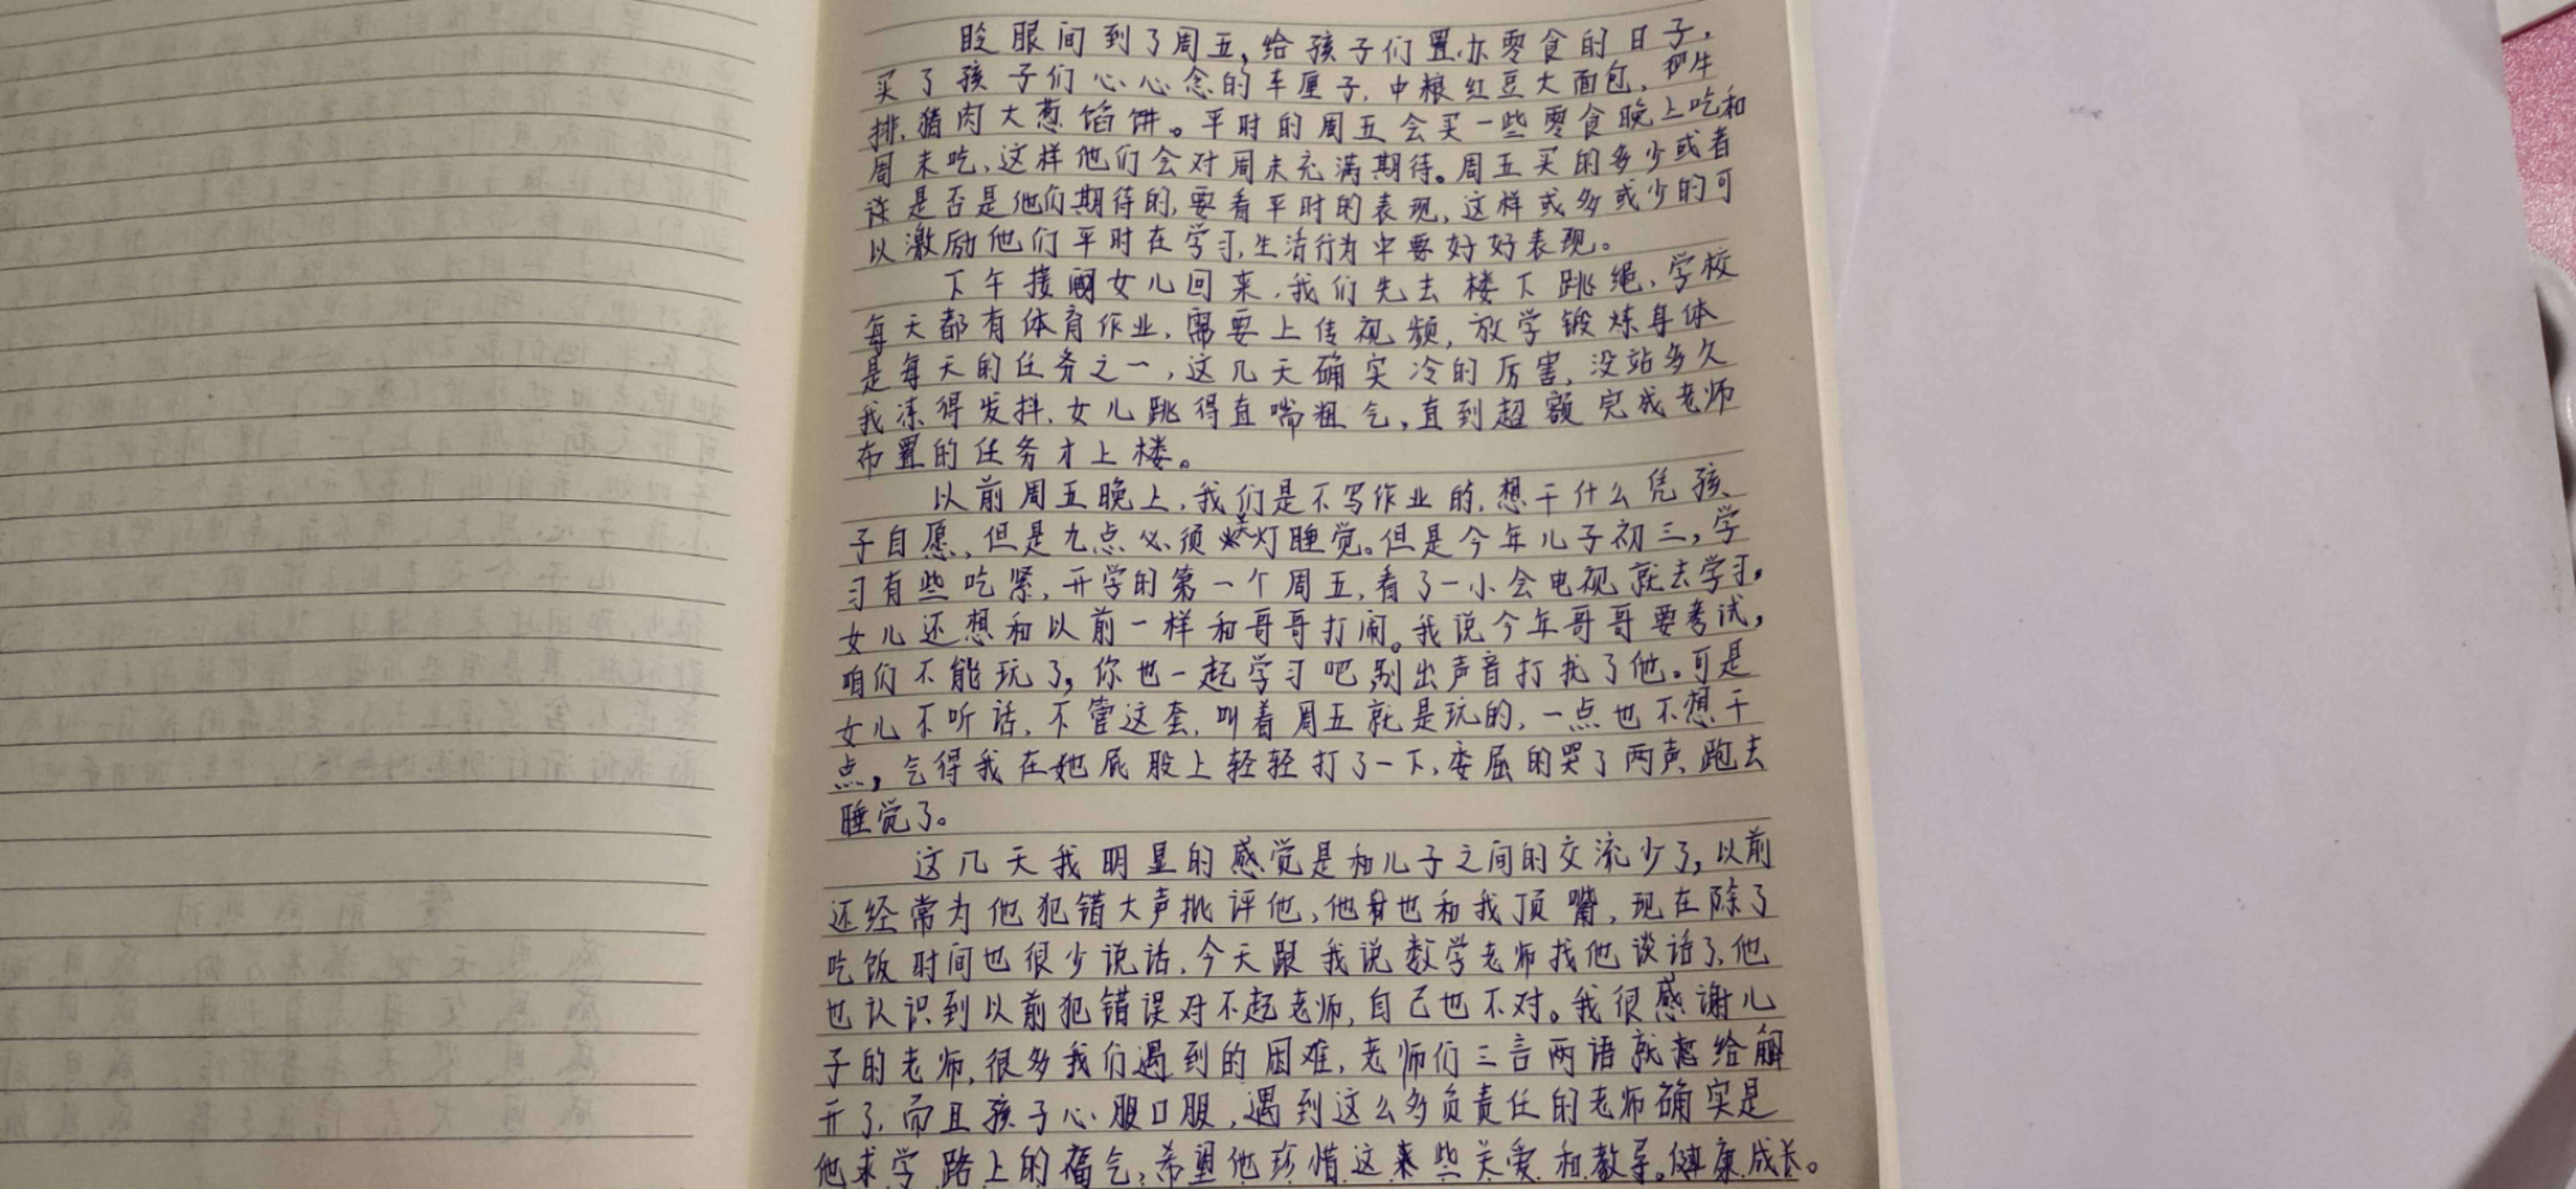 眨眼间到了周五,给孩子们置办零食的日子,
买了孩子们心心念的车厘子,中粮红豆大面包,和牛
排,猪肉大葱馅饼。平时的周五会买一些零食晚上吃和
周末吃,这样他们会对周末充满期待。周五买的多少或者
许是否是他们期待的,要看平时的表现,这样或多或少的可
以激励他们平时在学习,生活行为中要好好表现。
下午接女儿回来,我们先去楼下跳绳,学校
每天都有体育作业,需要上传视频,放学锻炼身体
是每天的任务之一,这几天确实冷的厉害,没站多久
我冻得发抖,女儿跳得直喘粗气,直到超额完成老师
布置的任务才上楼。
以前周五晚上,我们是不写作业的,想干什么凭孩
子自愿,但是九点必须关灯睡觉。但是今年儿子初三,学
习有些吃紧,开学的第一个周五,看了一小会电视就去学习,
女儿还想和以前一样和哥哥打闹。我说今年哥哥要考试,
咱们不能玩了,你也一起学习吧别出声音打扰了他。可是
女儿不听话,不管这套,叫着周五就是玩的,一点也不想干
点,气得我在她屁股上轻轻打了一下,委屈的哭了两声跑去
睡觉了。
这几天我明显的感觉是和儿子之间的交流少了,以前
还经常为他犯错大声批评他,他也和我顶嘴,现在除了
吃饭时间也很少说话,今天跟我说数学老师找他谈话了,他
也认识到以前犯错误对不起老师,自己也不对。我很感谢儿
子的老师,很多我们遇到的困难,老师们三言两语就给解
开了,而且孩子心服口服,遇到这么多负责任的老师确实是
他求学路上的福气,希望他珍惜这来些关爱和教导。健康成长。